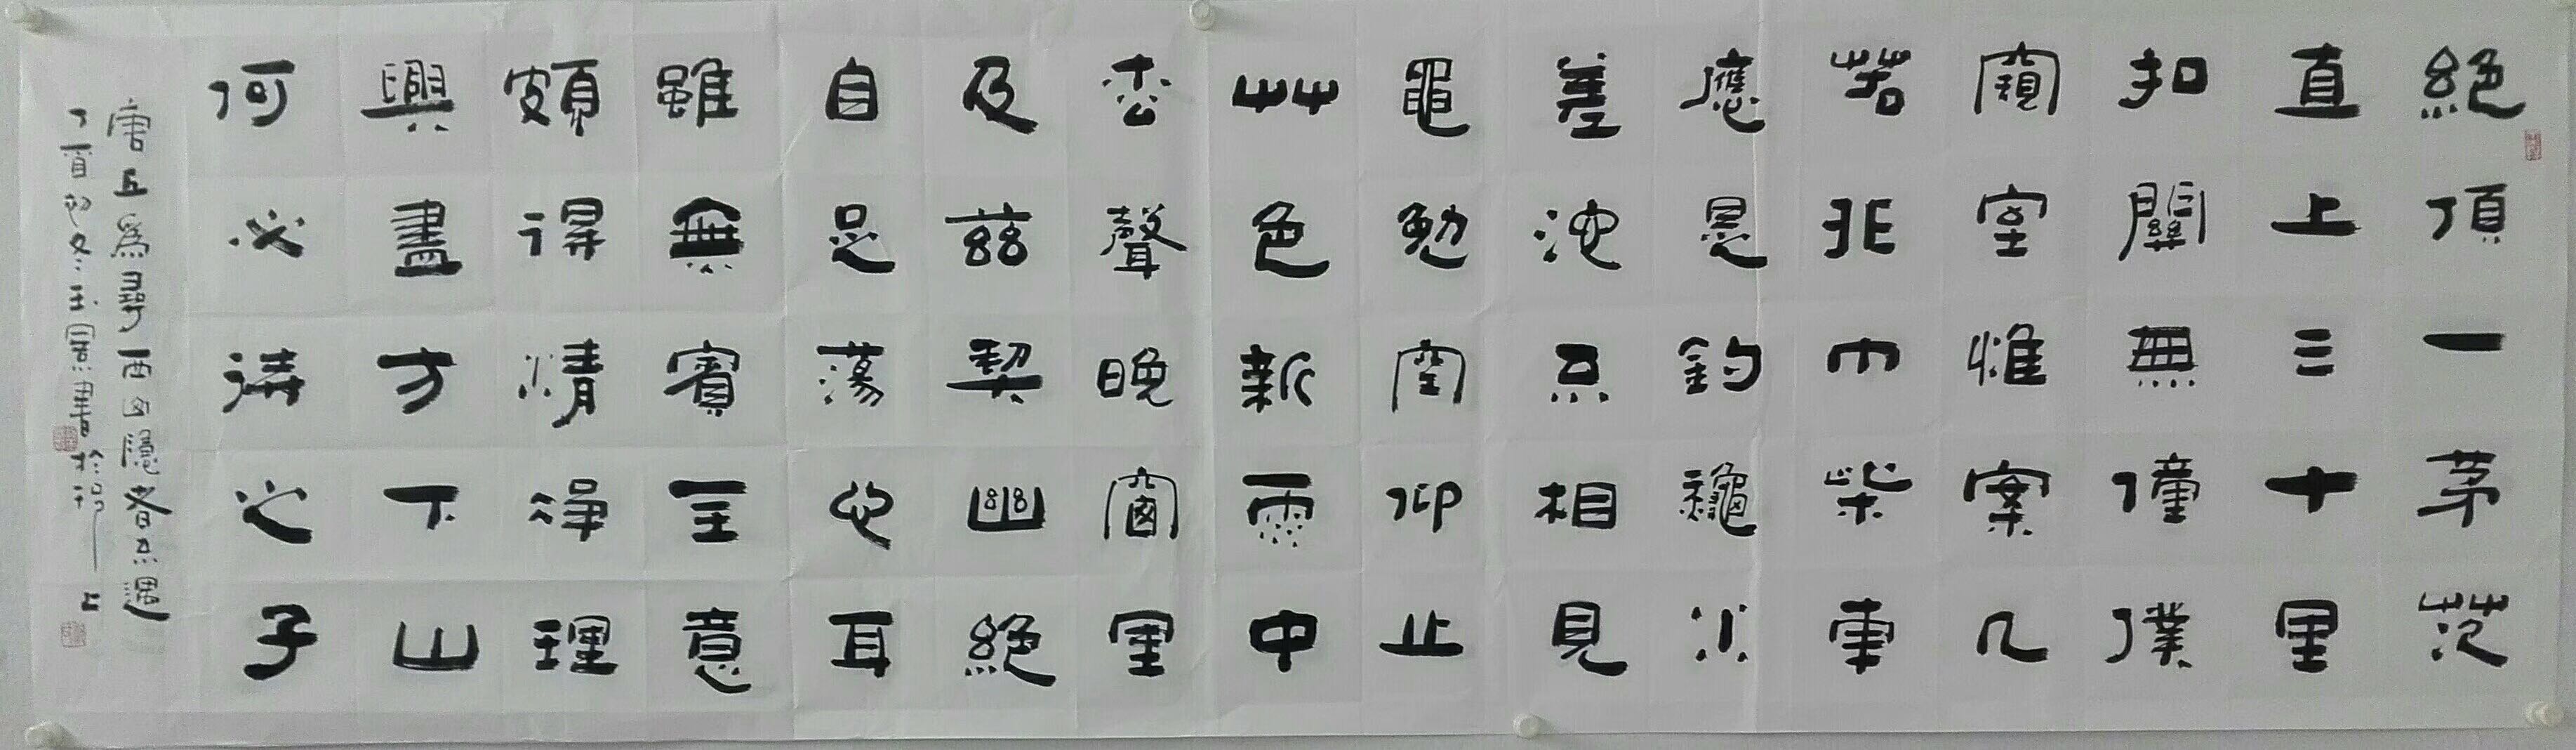 絕頂一茅茨
直上三十里
扣關無僮僕
窺室惟案几
若非巾柴車
應是釣龝水
差池不相見
黽勉空仰止
艸色新雨中
枩聲晚窗里
及茲契幽絕
自足蕩心耳
雖無賓主意
頗得清淨理
興盡方下山
何必待之子
唐丘為尋西山隱者不遇
丁酉初冬玉書於